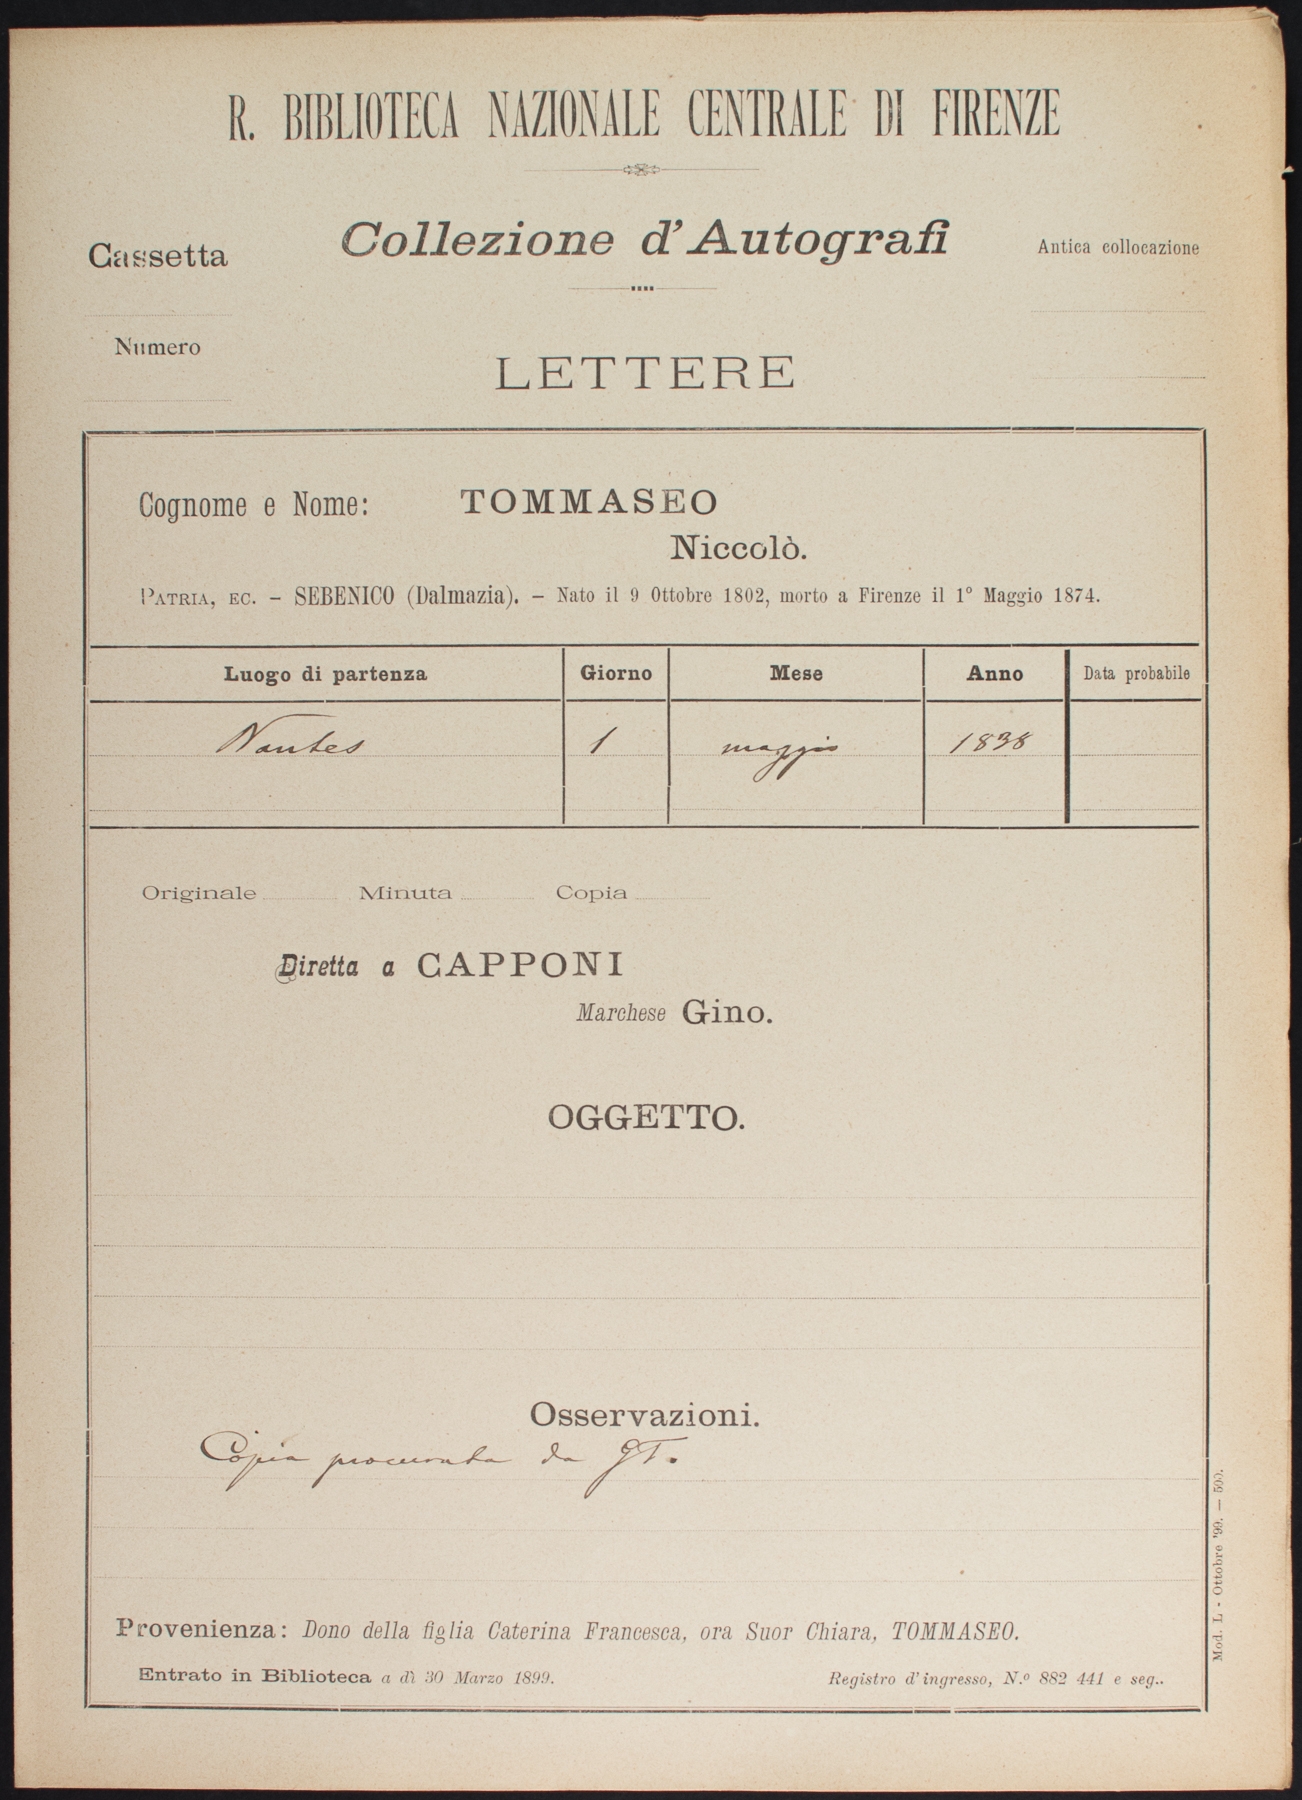 R. BIBLIOTECA NAZIONALE CENTRALE DI FIRENZE
Cassetta
Collezione d'Autografi
Antica collocazione
Numero
LETTERE
Cognome e Nome: TOMMASEO
Niccolò.
PATRIA, EC. - SEBENICO (Dalmazia). - Nato il 9 Ottobre 1802, morto a Firenze il 1° Maggio 1874.
Luogo di partenza Giorno Mese Anno Data probabile
Nantes 1 maggio 1838
Originale Minuta Copia
Diretta a CAPPONI
Marchese Gino.
OGGETTO.
Osservazioni.
Copia procurata da GT.
Provenienza: Dono della figlia Caterina Francesca, ora Suor Chiara, TOMMASEO.
Entrato in Biblioteca a dì 30 Marzo 1899. Registro d'ingresso, N.° 882 441 e seg..
Mod. L - Ottobre '99. — 500.